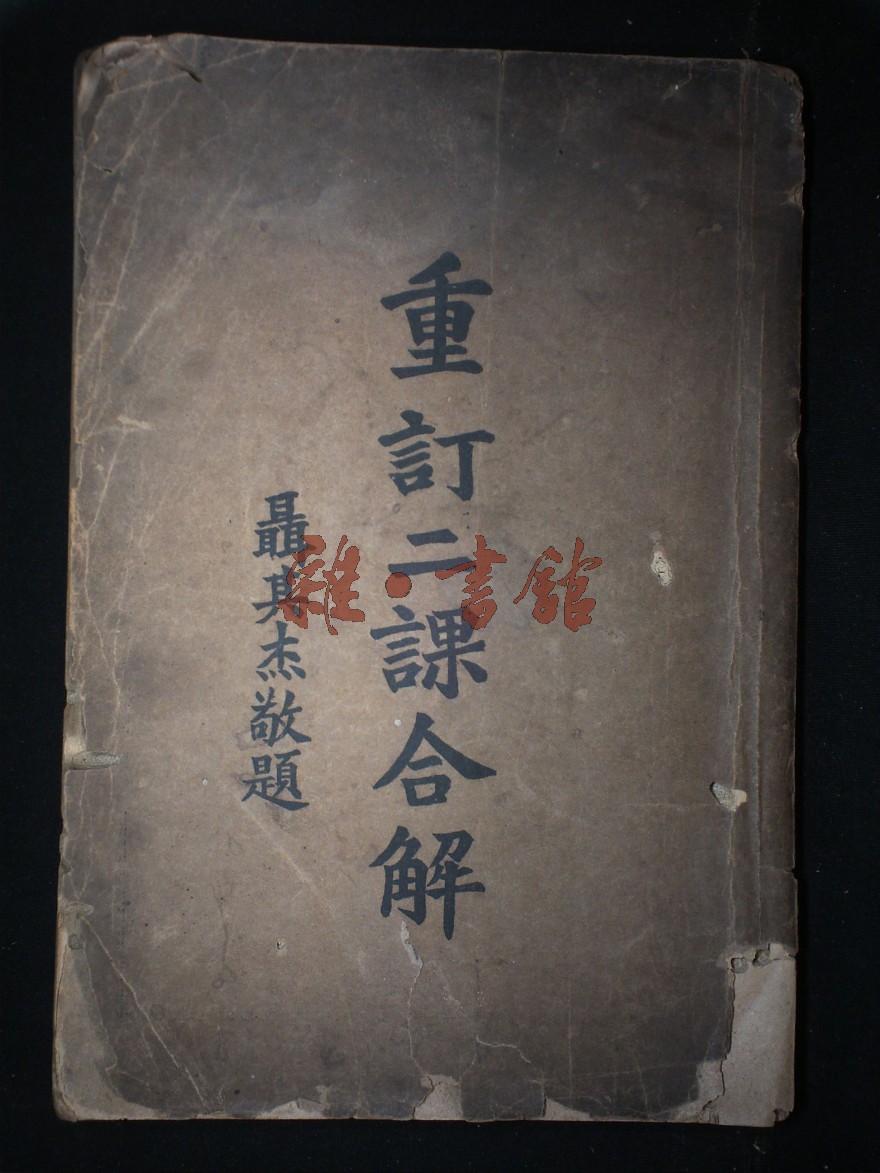 重訂二課合解
聶其杰敬題
雜·書館